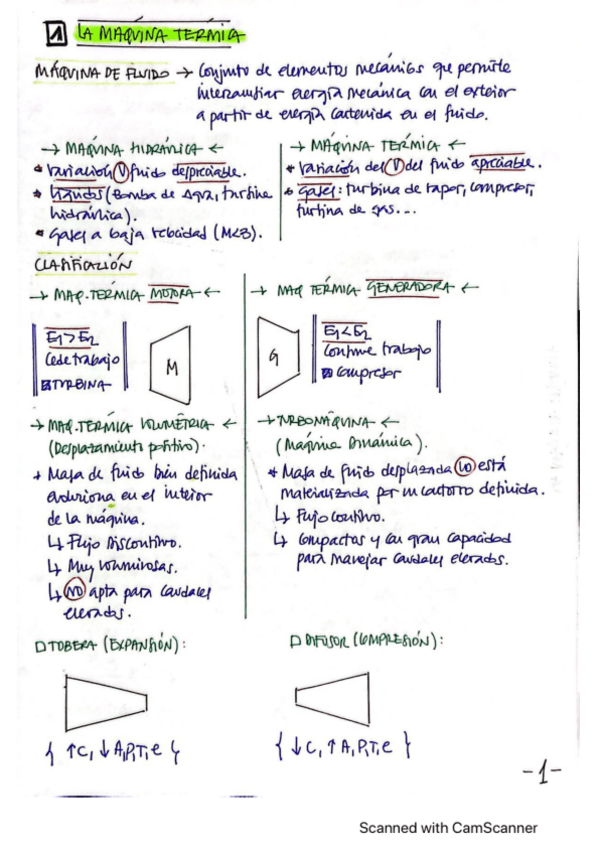 1 LA MÁQUINA TÉRMIA
MÁQUINA DE FLUIDO → Conjunto de elementos mecánicos que permite
intercambiar energía mecánica con el exterior
a partir de energía contenida en el fluido.
→ MAQUINA HIDRÁULICA ←
* Variación V fluido despreciable.
* Líquidos (Bomba de agua, turbina
hidráulica).
* Gases a baja velocidad (M<3).
→ MÁQUINA TÉRMICA ←
* Variación del V del fluido apreciable.
* Gases: turbina de vapor, compresor,
turbina de gas...
CLASIFICACIÓN
→ MAQ. TÉRMICA MOTORA ←
E1 > E2
Cede trabajo
TURBINA
M
→ MAQ TÉRMICA GENERADORA ←
G
E1 < E2
Consume trabajo
Compresor
→ MAQ. TÉRMICA VOLUMÉTRICA ←
(Desplazamiento positivo).
* Masa de fluido bien definida
evoluciona en el interior
de la máquina.
↳ Flujo Discontinuo.
↳ Muy voluminosas.
↳ NO apta para caudales
elevados.
→ TURBOMÁQUINA ←
(Máquina Dinámica).
* Masa de fluido desplazada NO está
materializada por un contorno definida.
↳ Flujo continuo.
↳ Compactos y con gran capacidad
para manejar caudales elevados.
TOBERA (EXPANSIÓN):
{ ↑C, ↓A,P,T,e }
DIFUSOR (COMPRESIÓN):
{ ↓C, ↑A,P,T,e }
-1-
Scanned with CamScanner